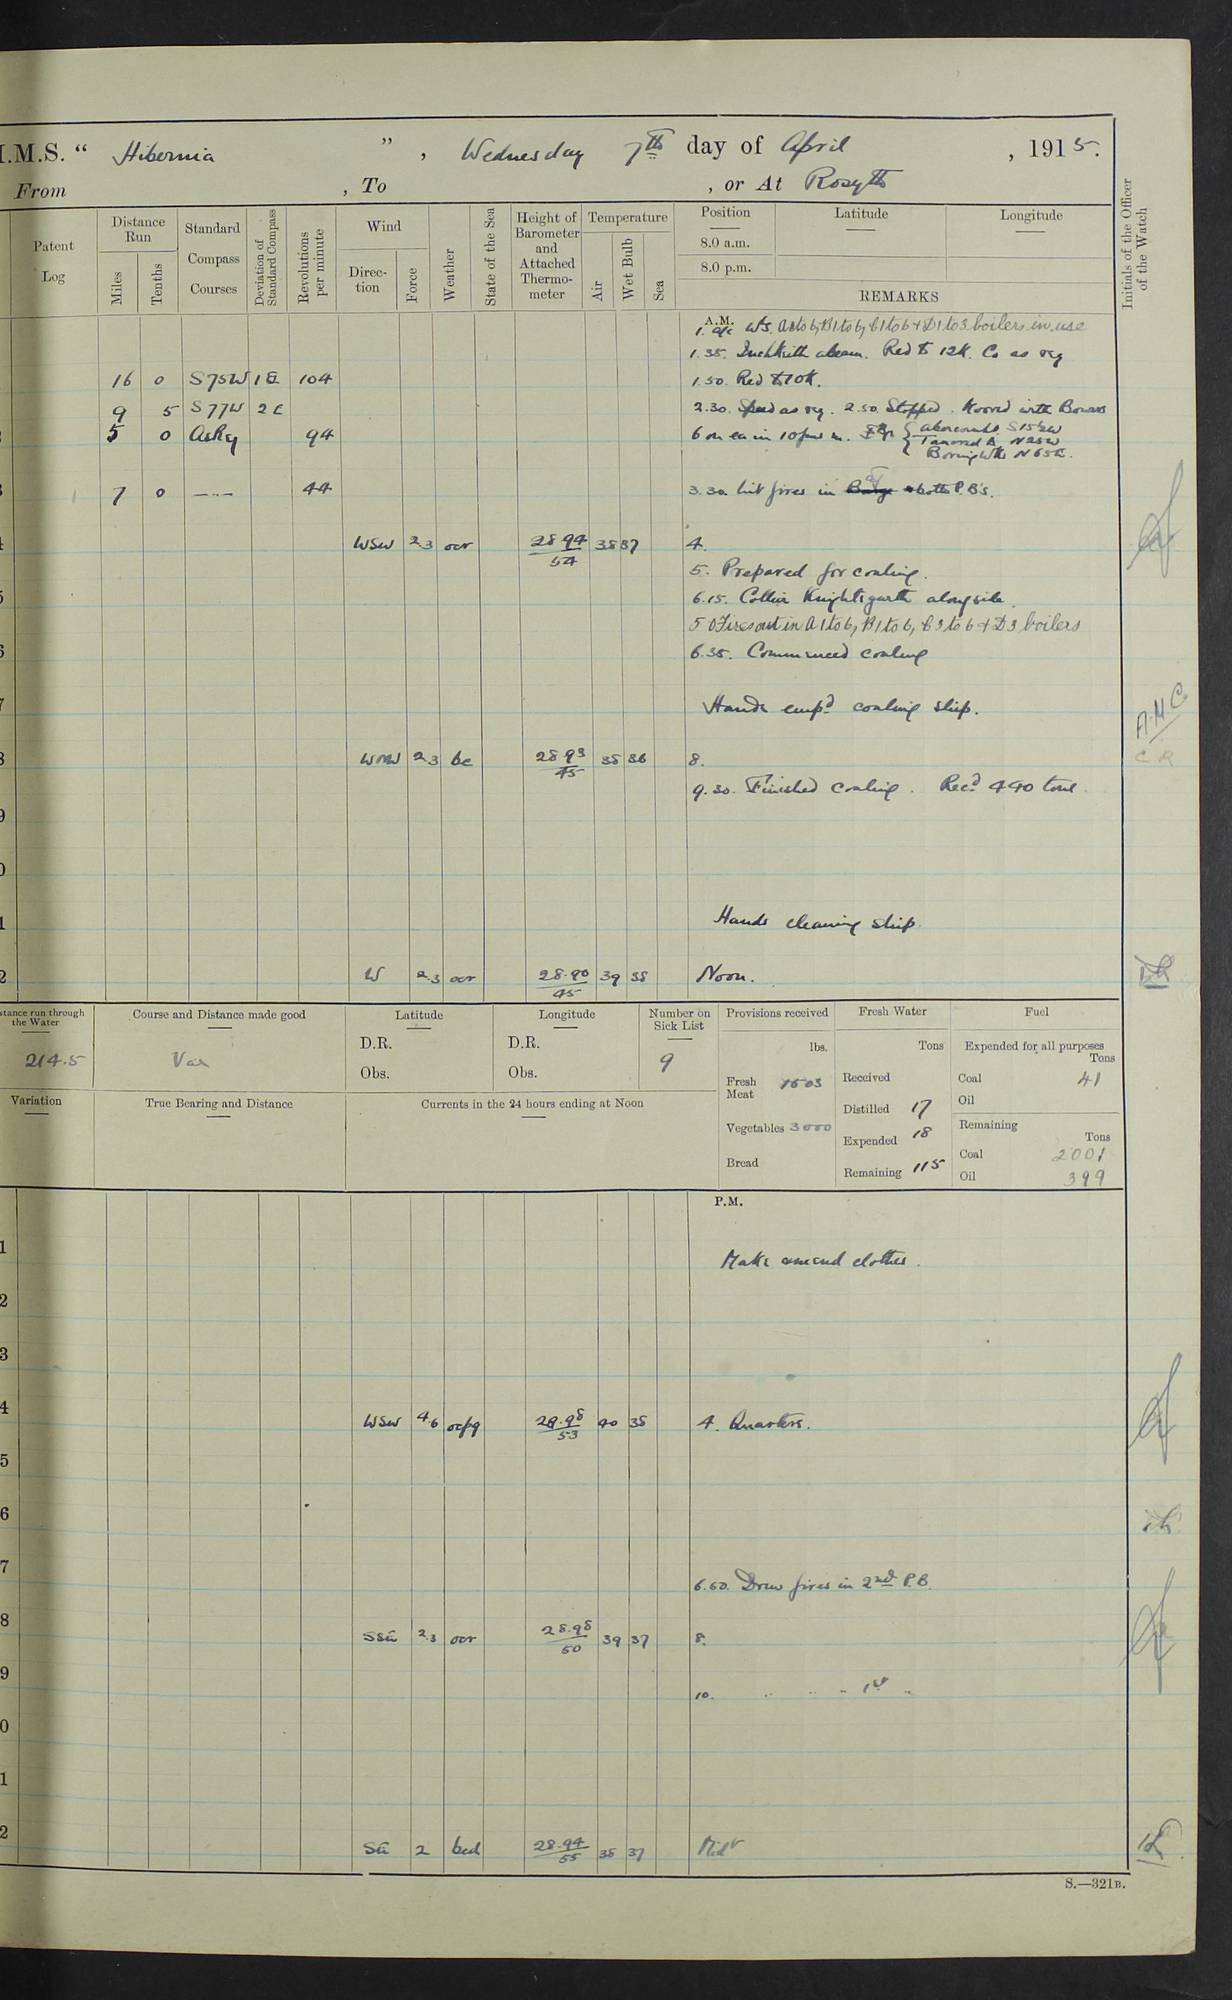 H.M.S. “ Hibernia ” , Wednesday 7th day of April , 1915.
From , To , or At Rosyth
Patent Log
Distance Run
Miles Tenths
Standard Compass Courses
Deviation of Standard Compass
Revolutions per minute
Wind
Direc- tion Force
Weather
State of the Sea
Height of Barometer and Attached Thermo- meter
Temperature
Air Wet Bulb Sea
Position Latitude Longitude
8.0 a.m.
8.0 p.m.
REMARKS
Initials of the Officer of the Watch
A.M.
1. a/c W'S. A1 to 6, B1 to 6, C1 to 6 & D1 to 3 boilers in use
1.35. Inchkeith abeam. Red to 12K. Co as req
16 0 S75W 1E 104 1.50. Red to 10K.
9 5 S77W 2E 2.30. Speed as rq. 2.50. Stopped. Moored with Bowers
5 0 As Rq 94 6 on ea in 10 fms m. { Abercromby S15½W
Tancred B. N25W
N65E.
7 0 —··— 44 3.30. Lit fires in both P.B's.
4 WSW 2.3 ocr 28.94/54 38 37 4.
5. Prepared for coaling.
5 6.15. Collier Knightsgarth alongside.
5.0 Fires out in A 1 to 6, B 1 to 6, C 3 to 6 & D 3 boilers
6 6.35. Commenced coaling
7 Hands emp'd coaling ship. A.M.C
8 WNW 2.3 bc 28.93/45 38 36 8. C R
9.30. Finished coaling. Rec'd 440 tons.
9
0
1 Hands cleaning ship.
2 W 2.3 ocr 28.90/45 39 38 Noon.
Distance run through the Water
Course and Distance made good
Latitude Longitude
Number on Sick List
Provisions received Fresh Water Fuel
214.5 Var
D.R. D.R.
Obs. Obs.
9
lbs. Tons Expended for all purposes Tons
Fresh Meat 1503 Received Coal 41
Distilled 17 Oil
Variation True Bearing and Distance Currents in the 24 hours ending at Noon
Vegetables 3000 Expended 18 Remaining Tons
Bread Remaining 115 Coal 2001
Oil 399
P.M.
1 Make & mend clothes.
2
3
4 WSW 4.6 ocpq 28.98/53 40 38 4. Quarters.
5
6
7 6.50. Drew fires in 2nd P.B.
8 SSE 2.3 ocr 28.98/50 39 37 8.
9 10. „ „ „ 1st „
0
1
2 SE 2 bcd 28.94/55 38 37 Midt
S.—321B.